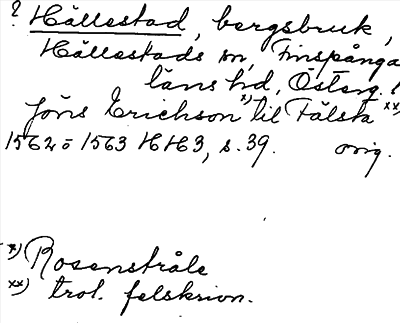 ? Hällestad, bergsbruk,
Hällestads sn, Finspånga
läns hd, Österg.?
Jöns Erichson *) til Fålsta **)
1562 o 1563 HH3, s. 39. orig.
*) Rosenstråle
**) trol. felskrivn.